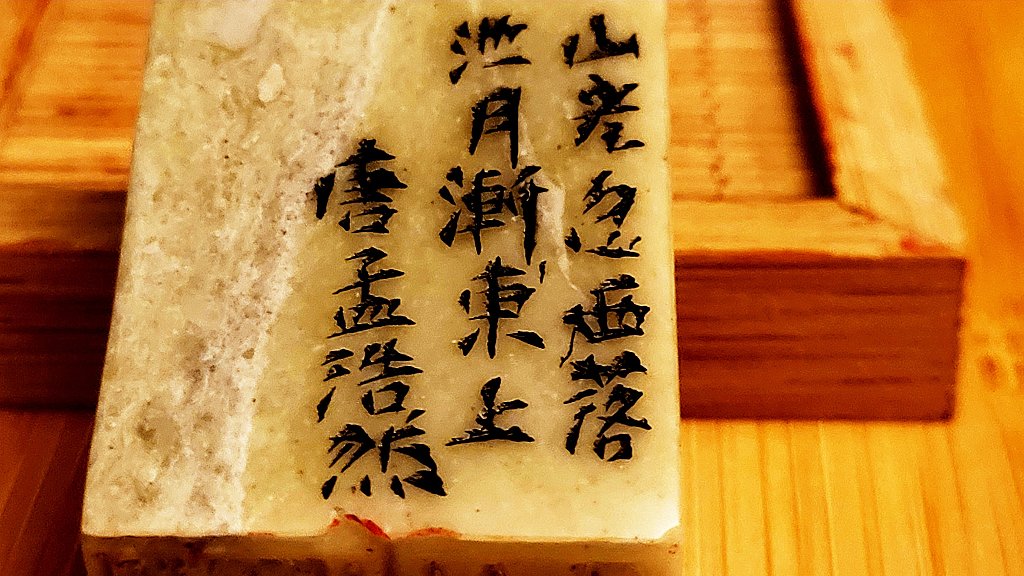 山光忽西落
池月漸東上
唐孟浩然